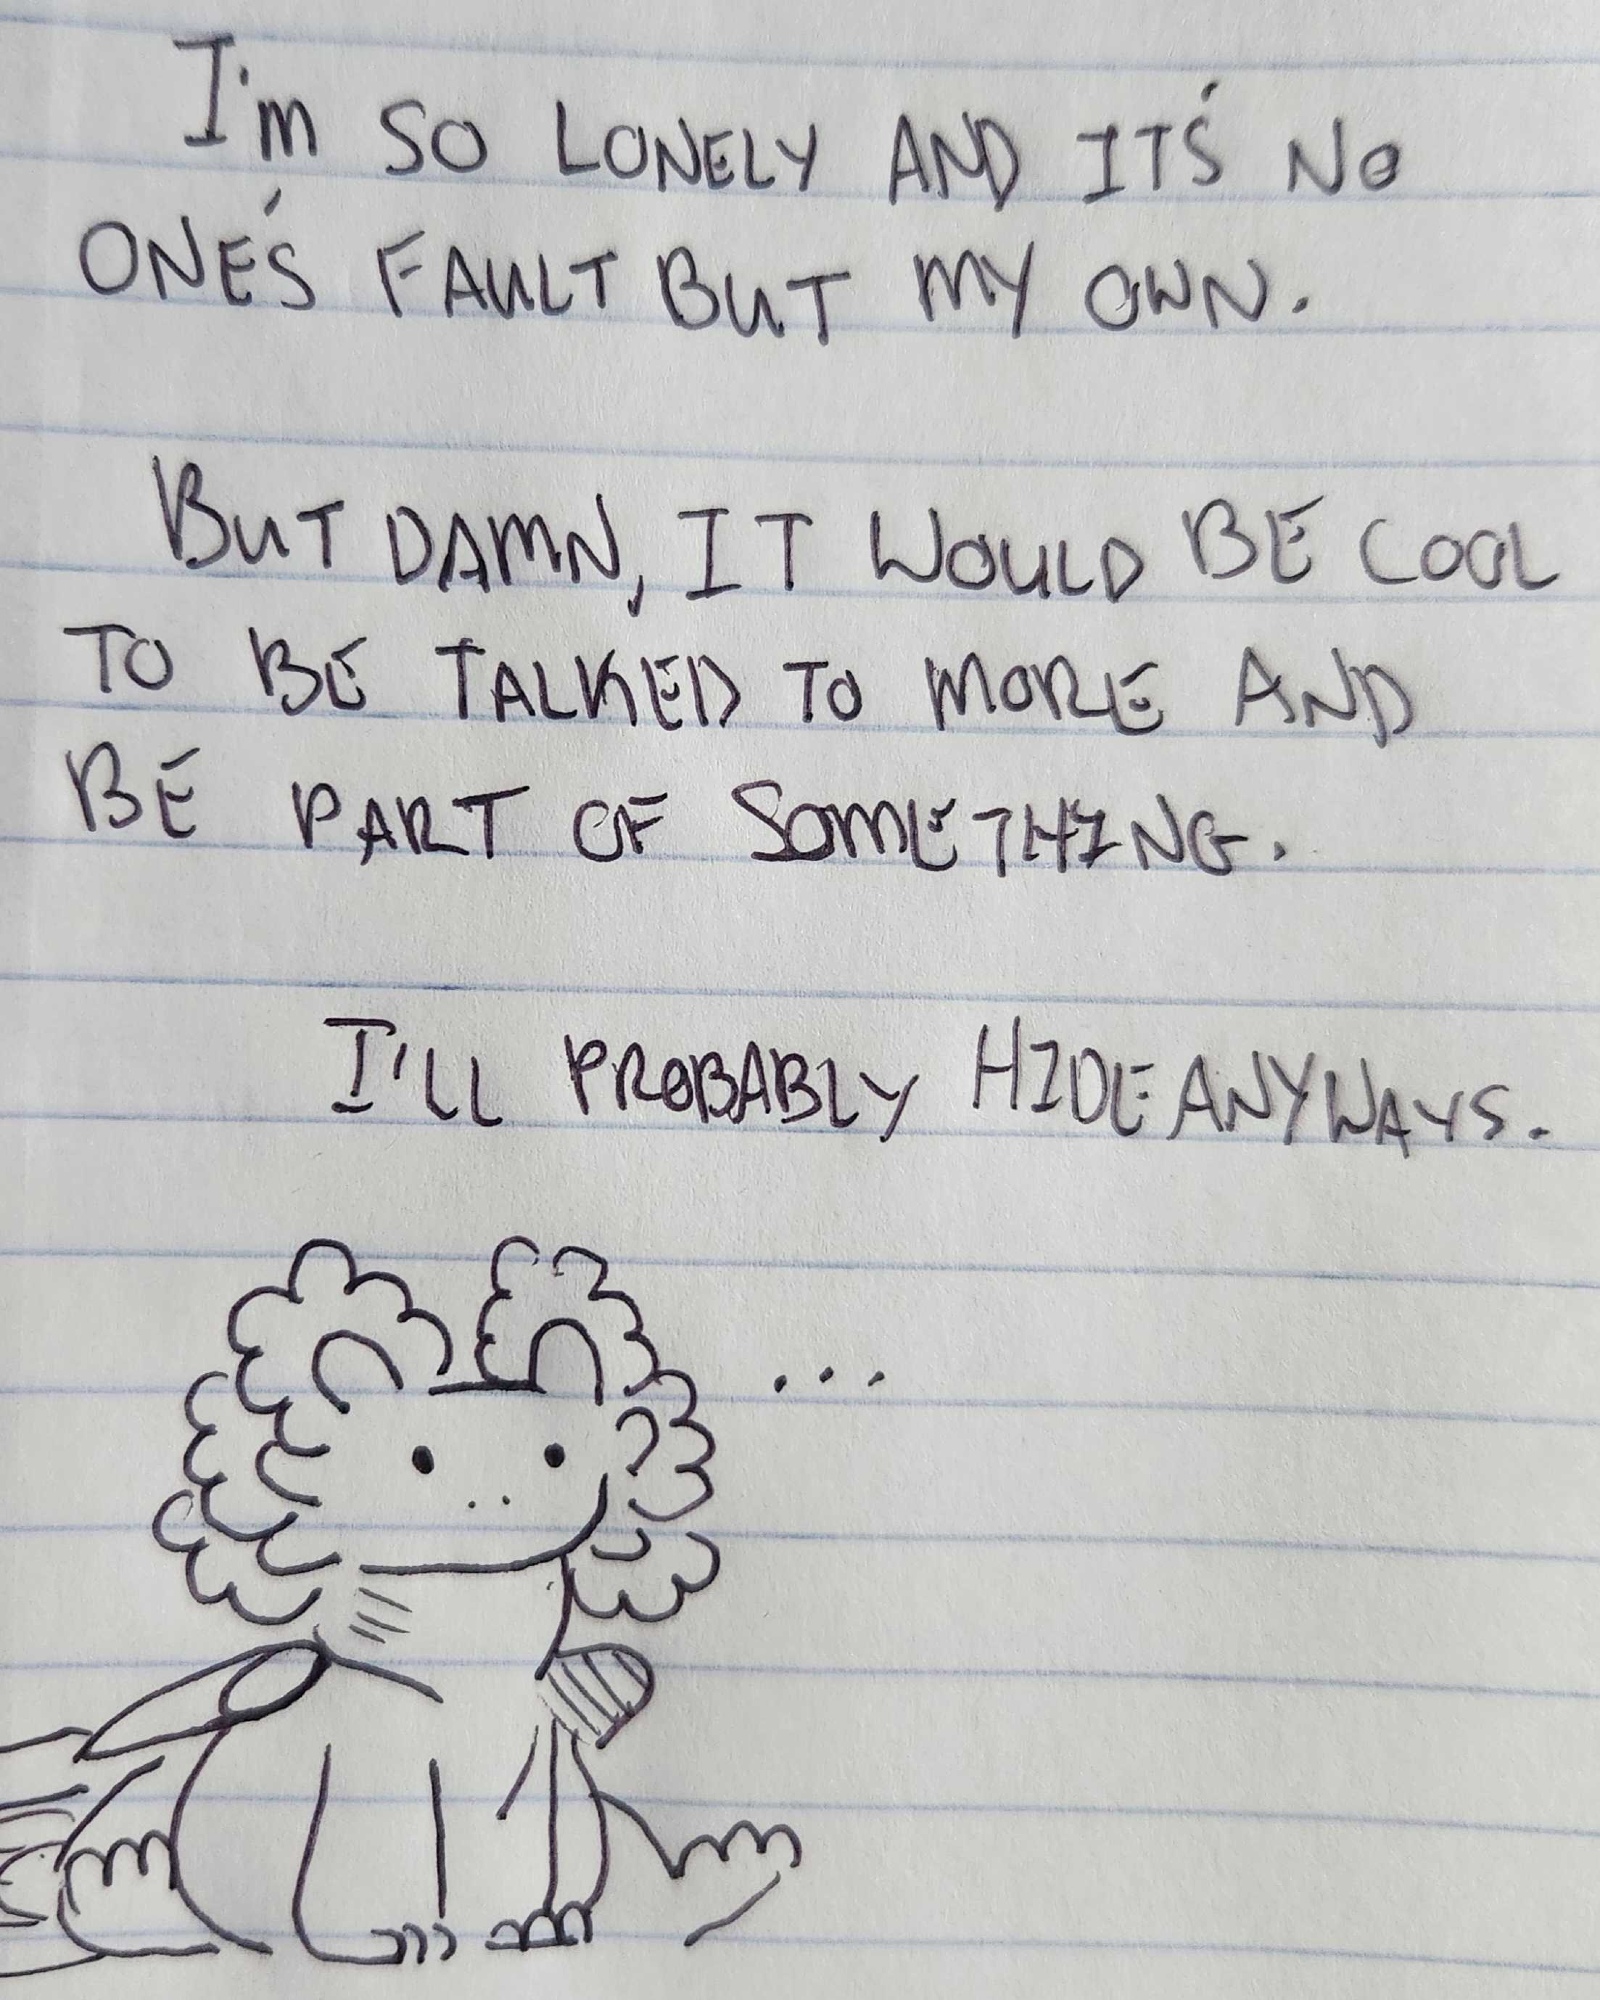 I'm SO LONELY AND IT'S NO
ONE'S FAULT BUT MY OWN.
BUT DAMN, IT WOULD BE COOL
TO BE TALKED TO MORE AND
BE PART OF SOMETHING.
I'LL PROBABLY HIDE ANYWAYS.
...